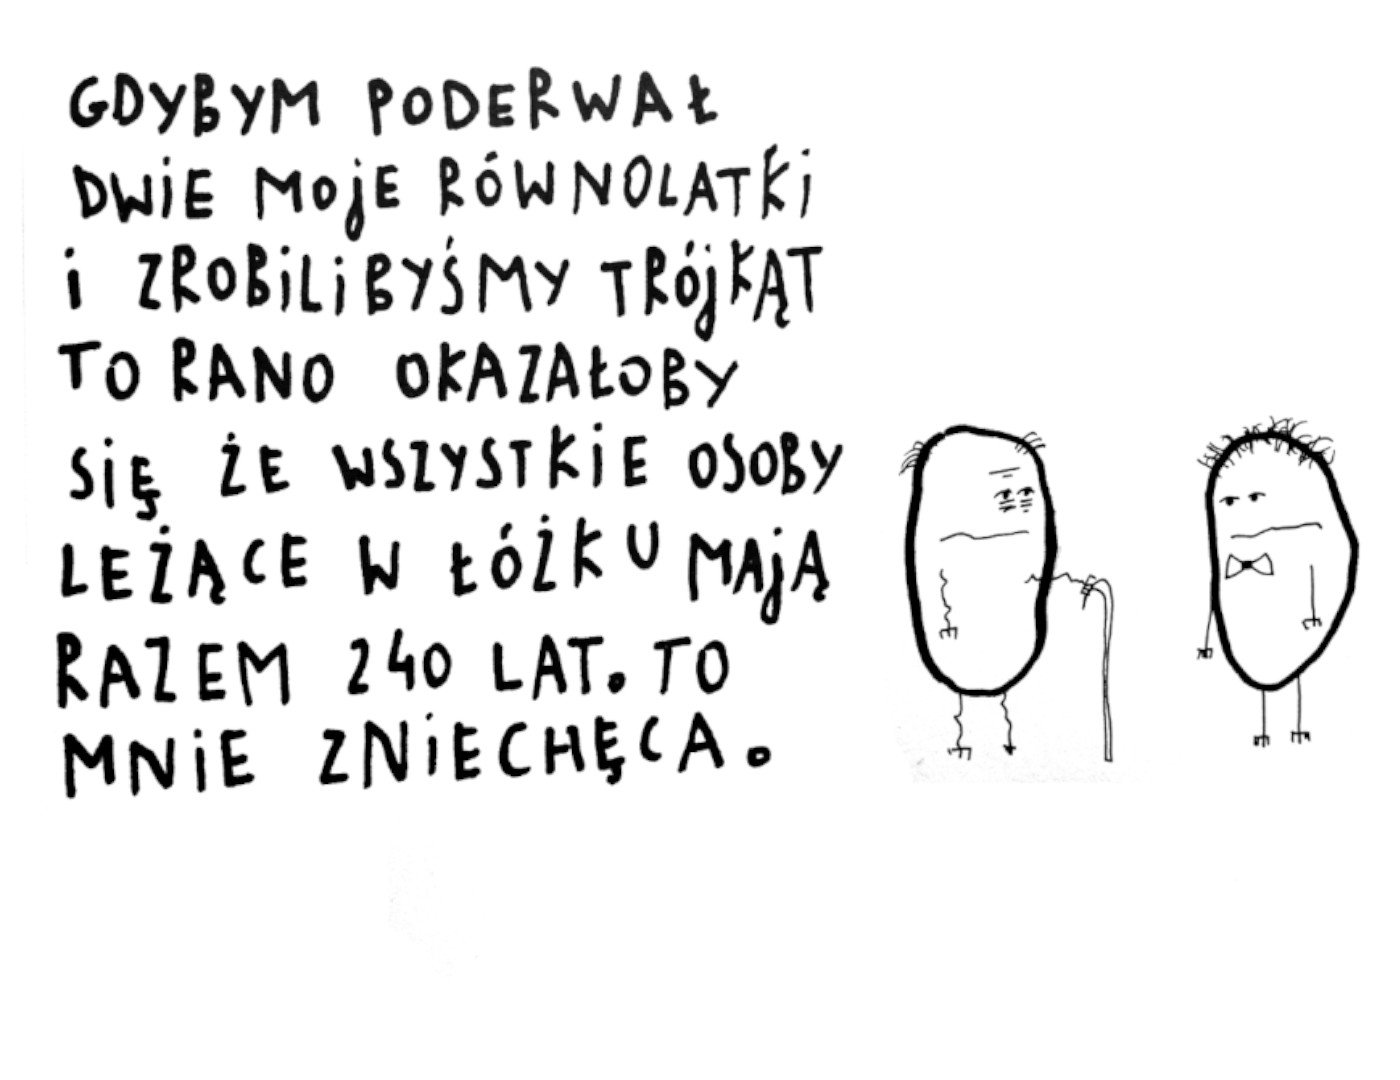 GDYBYM PODERWAŁ
DWIE MOJE RÓWNOLATKI
I ZROBILIBYŚMY TRÓJKĄT
TO RANO OKAZAŁOBY
SIĘ ŻE WSZYSTKIE OSOBY
LEŻĄCE W ŁÓŻKU MAJĄ
RAZEM 240 LAT. TO
MNIE ZNIECHĘCA.